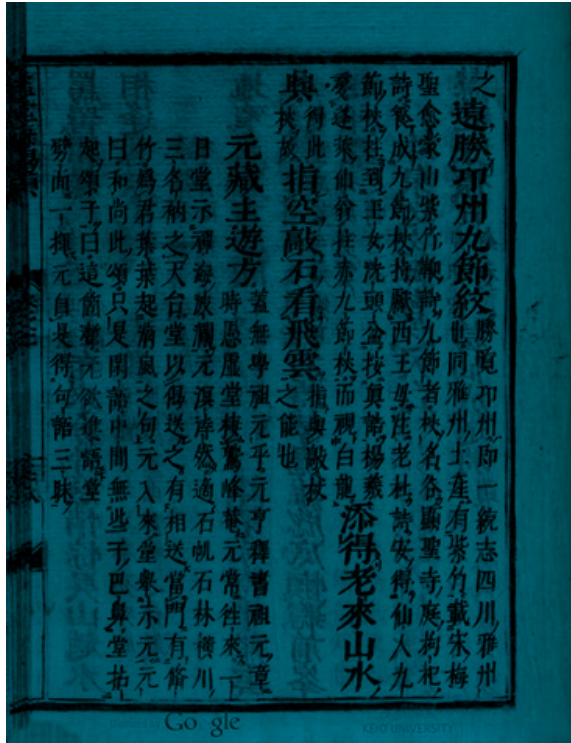 之遠勝卭州九節紋勝覧卭州即一統志四川雅州
也同雅州土産有紫竹載宋梅
聖兪蒙山紫竹鞭詩九節者杖名谷顯聖寺庭拘杞
詩養成九節杖持獻西王母註老杜詩安得仙人九
節杖拄到玉女洗頭盆按眞誥楊羲
夢蓬萊仙翁拄赤九節杖而視白龍添得老來山水
興得此杖故指空敲石看飛雲指與敲杖之能也
元藏主遊方蓋無學祖元乎元亨釋書祖元章
時愚虚堂棲鷲峰菴元常徃來一
日堂示禪海放瀾元渙然適石帆石林横川
三名衲之天台堂以偈送之有相送當門有脩
竹爲君葉葉起淸風之句元入來堂擧示元元
曰和尚此頌只是閑語中間無些子巴鼻堂拈
起頌子曰這箇聻元欲進語堂
劈面一揮元自是得句語三昧
Go gle
KEIO UNIVERSITY